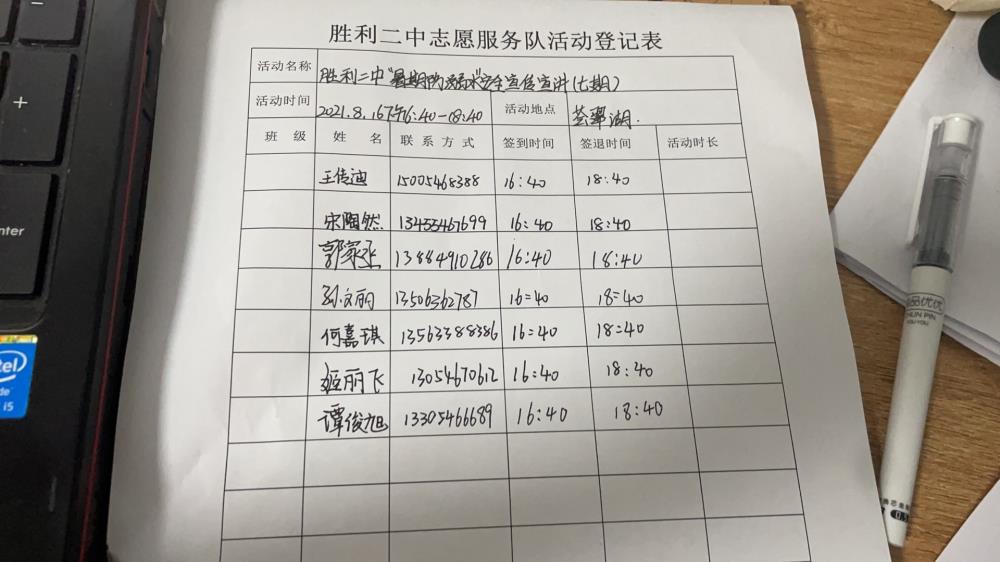 胜利二中志愿服务队活动登记表
活动名称 胜利二中"暑期防溺水"安全宣传宣讲(七期)
活动时间 2021.8.16下午16:40-18:40 活动地点 荟翠湖.
班 级 姓 名 联 系 方 式 签到时间 签退时间 活动时长
王传迪 15005468388 16:40 18:40
宋陶然 13455467699 16:40 18:40
郭家丞 13884910286 16:40 18:40
孙文丽 13506362787 16=40 18=40
何嘉琪 13563388386 16=40 18=40
姬丽飞 13054670612 16:40 18:40
谭俊旭 13305466689 16:40 18:40
enter
intel
i5
品优优
HUN PIN
YOUYOU
0.5